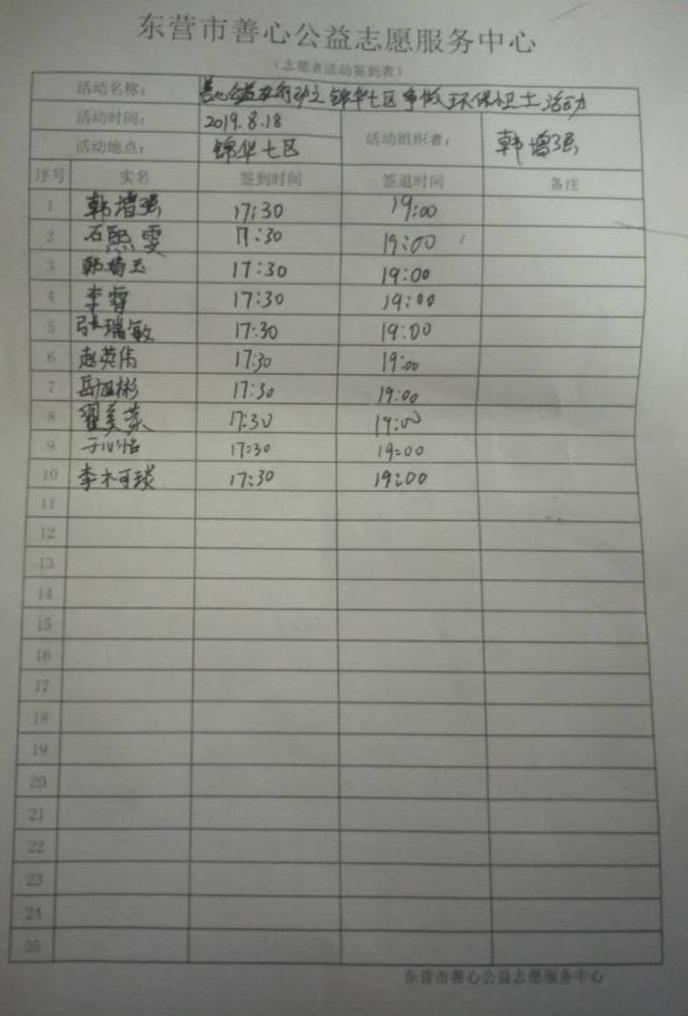 东营市善心公益志愿服务中心
(志愿者活动签到表)
活动名称: 善心公益在行动之锦华七区争做环保卫士活动
活动时间: 2019.8.18 活动组织者: 韩增强
活动地点: 锦华七区
序号 实名 签到时间 签退时间 备注
1 韩增强 17:30 19:00
2 石熙雯 17:30 19:00
3 17:30 19:00
4 李睿 17:30 19:00
5 张瑞敏 17:30 19:00
6 赵英伟 17:30 19:00
7 岳旭彬 17:30 19:00
8 翟美荣 17:30 19:00
9 于心怡 17:30 19:00
10 李木可琰 17:30 19:00
11
12
13
14
15
16
17
18
19
20
21
22
23
24
25
东营市善心公益志愿服务中心